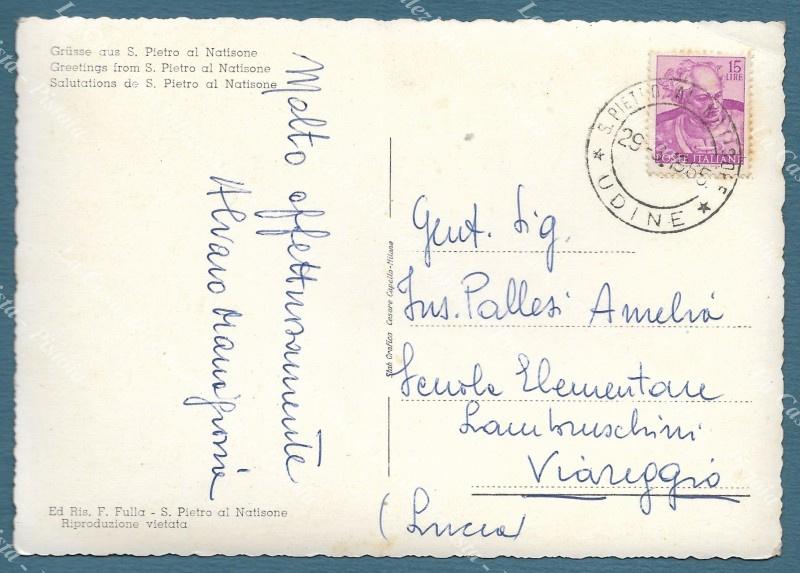 Grüsse aus S. Pietro al Natisone
Greetings from S. Pietro al Natisone
Salutations de S. Pietro al Natisone
Molto affettuosamente
Alvaro
15
LIRE
POSTE ITALIANE
S. PIETRO AL NATISONE
1965
★ UDINE ★
Gent. Sig.
Ins. Pallesi Amelia
Scuole Elementare
Lambruschini
Viareggio
(Lucca)
Stab Grafico Cesare Capello-Milano
Ed Ris. F. Fulla - S. Pietro al Natisone
Riproduzione vietata